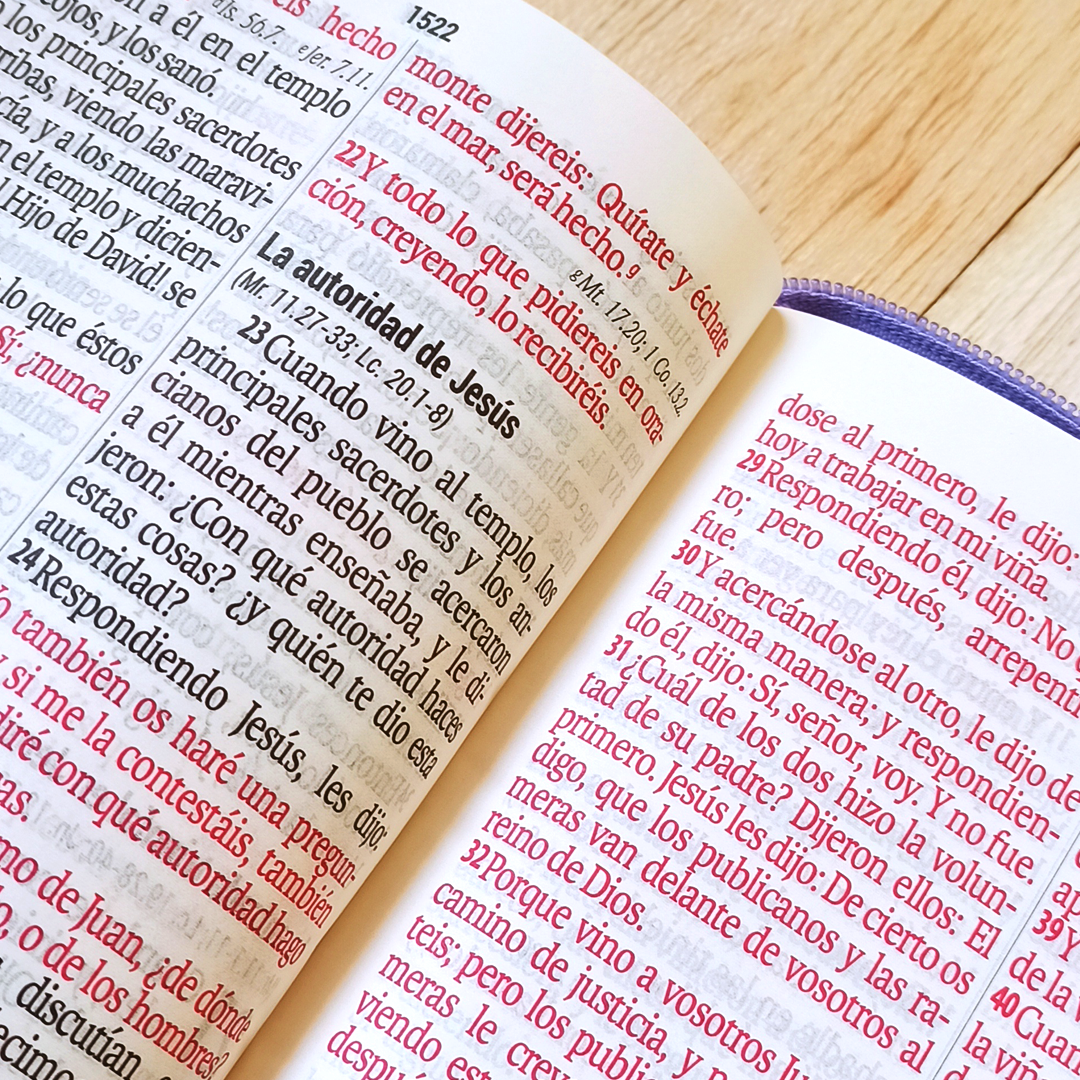 hecho
dIs. 56.7. eJer. 7.11.
a él en el templo
cojos, y los sanó.
los principales sacerdotes
viendo las maravi-
y a los muchachos
en el templo y dicien-
Hijo de David! se
lo que éstos
Sí, ¿nunca
1522
monte dijereis: Quítate y échate
en el mar, será hecho.g
gMt. 17.20; 1 Co. 13.2.
22 Y todo lo que pidiereis en ora-
ción, creyendo, lo recibiréis.
La autoridad de Jesús
(Mr. 11.27-33; Lc. 20.1-8)
23 Cuando vino al templo, los
principales sacerdotes y los an-
cianos del pueblo se acercaron
a él mientras enseñaba, y le di-
jeron: ¿Con qué autoridad haces
estas cosas? ¿y quién te dio esta
autoridad?
24 Respondiendo Jesús, les dijo:
también os haré una pregun-
y si me la contestáis, también
diré con qué autoridad hago
de Juan, ¿de dónde
o de los hombres?
discutían
dose al primero, le dijo:
hoy a trabajar en mi viña.
29 Respondiendo él, dijo: No
ro; pero después,
fue.
30 Y acercándose al otro, le dijo de
la misma manera; y respondien-
do él, dijo: Sí, señor, voy. Y no fue.
31 ¿Cuál de los dos hizo la volun-
tad de su padre? Dijeron ellos: El
primero. Jesús les dijo: De cierto os
digo, que los publicanos y las ra-
meras van delante de vosotros al
reino de Dios.
32 Porque vino a vosotros
camino de justicia, y
teis; pero los
meras le
viendo
39 Y
de la
40
la